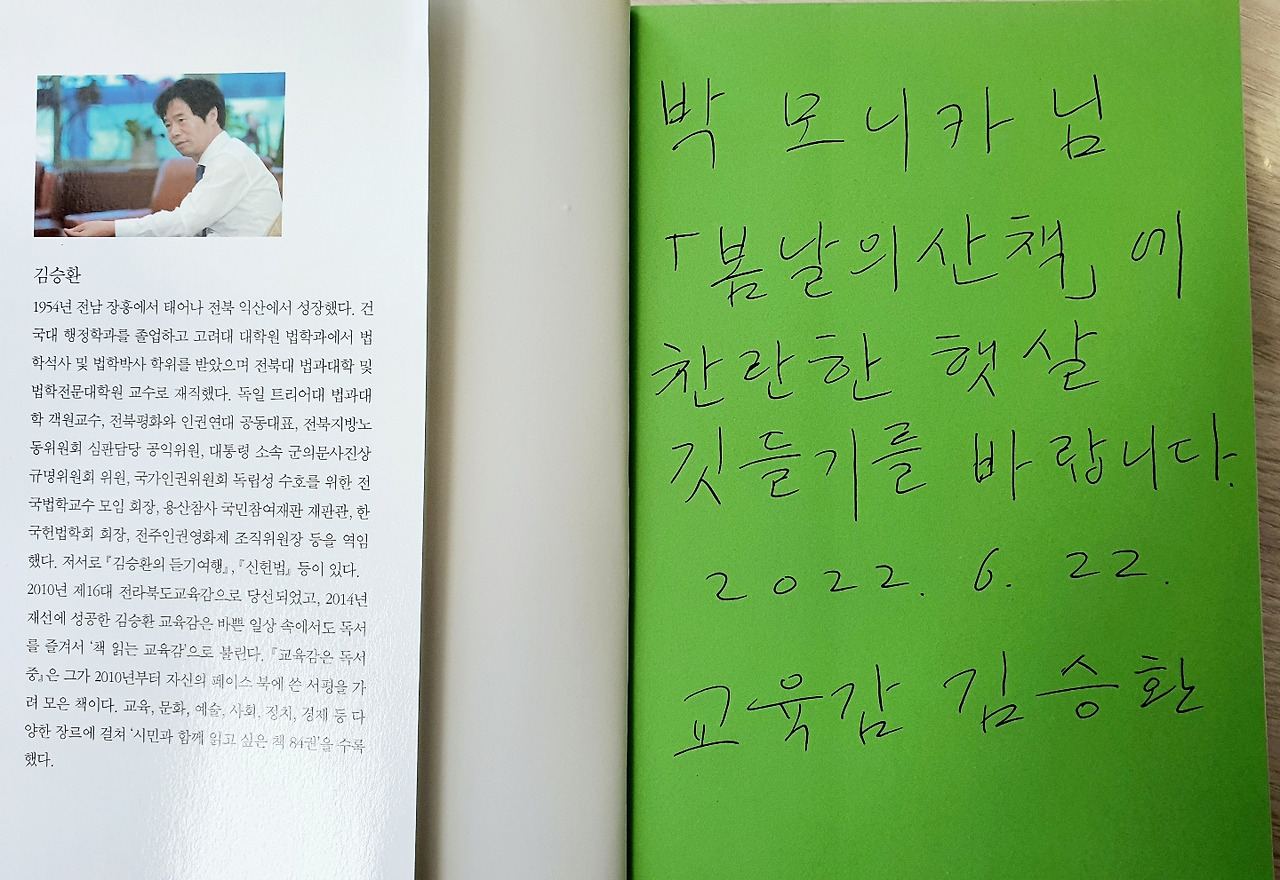 김승환
1954년 전남 장흥에서 태어나 전북 익산에서 성장했다. 건
국대 행정학과를 졸업하고 고려대 대학원 법학과에서 법
학석사 및 법학박사 학위를 받았으며 전북대 법과대학 및
법학전문대학원 교수로 재직했다. 독일 트리어대 법과대
학 객원교수, 전북평화와 인권연대 공동대표, 전북지방노
동위원회 심판담당 공익위원, 대통령 소속 군의문사진상
규명위원회 위원, 국가인권위원회 독립성 수호를 위한 전
국법학교수 모임 회장, 용산참사 국민참여재판 재판관, 한
국헌법학회 회장, 전주인권영화제 조직위원장 등을 역임
했다. 저서로 『김승환의 듣기여행』, 『신헌법』 등이 있다.
2010년 제16대 전라북도교육감으로 당선되었고, 2014년
재선에 성공한 김승환 교육감은 바쁜 일상 속에서도 독서
를 즐겨서 ‘책 읽는 교육감’으로 불린다. 『교육감은 독서
중』은 그가 2010년부터 자신의 페이스 북에 쓴 서평을 가
려 모은 책이다. 교육, 문화, 예술, 사회, 정치, 경제 등 다
양한 장르에 걸쳐 ‘시민과 함께 읽고 싶은 책 84권’을 수록
했다.
박 모니카 님
「봄날의 산책」에
찬란한 햇살
깃들기를 바랍니다.
2022. 6. 22.
교육감 김승환